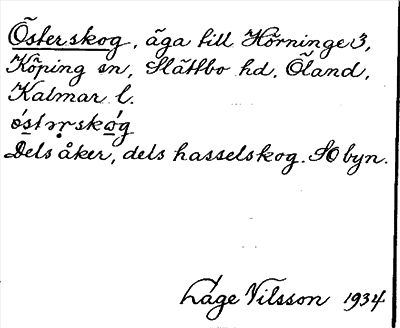 Österskog, äga till Hörninge 3,
Köping sn, Slättbo hd, Öland,
Kalmar l.
ó̤stərskó̤g
Dels åker, dels hasselskog. SO byn.
Åge Nilsson 1934